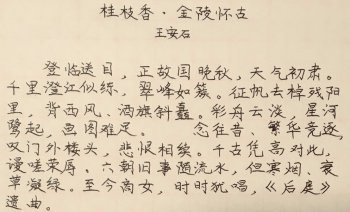 桂枝香·金陵怀古
王安石
登临送目，正故国晚秋，天气初肃。
千里澄江似练，翠峰如簇。征帆去棹残阳
里，背西风、酒旗斜矗。彩舟云淡，星河
鹭起，画图难足。 念往昔、繁华竞逐，
叹门外楼头，悲恨相续。千古凭高对此，
谩嗟荣辱。六朝旧事随流水，但寒烟、衰
草凝绿。至今商女，时时犹唱，《后庭》
遗曲。